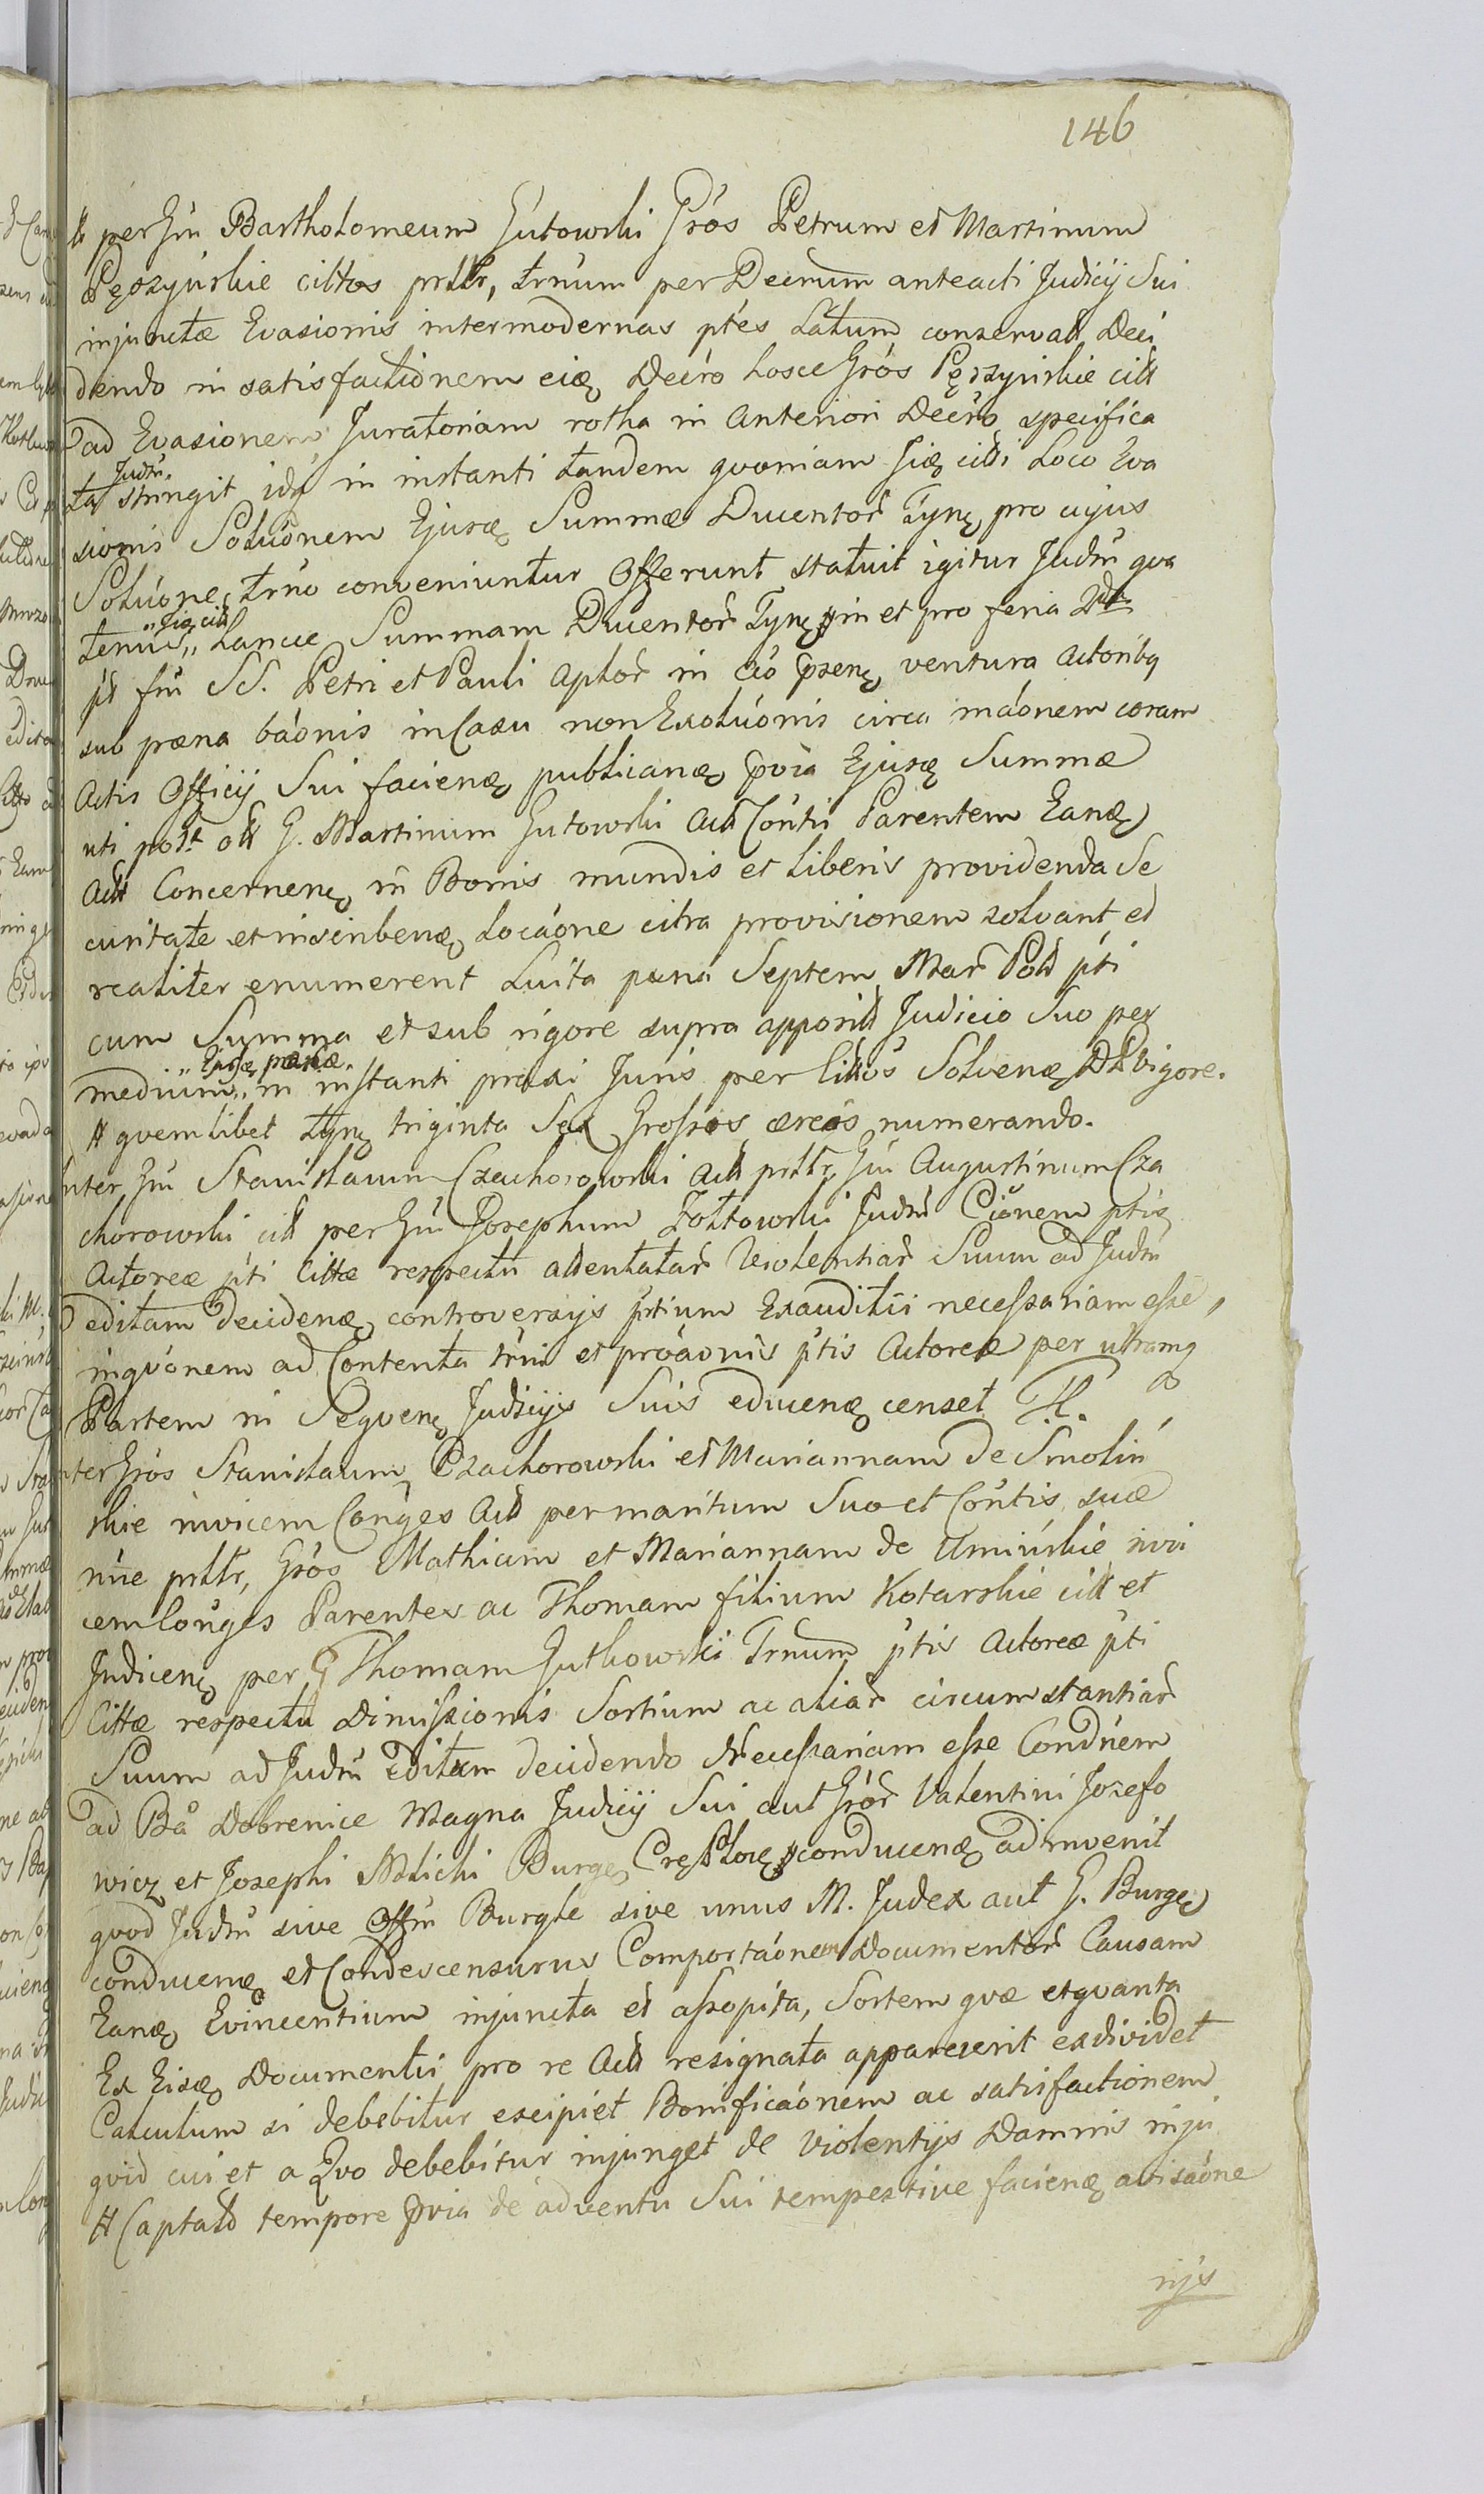 146
& per Gm Bartholomeum Gutowski Gros Petrum et Martinum
Pęszyńskie cittos prttr, trnum per Decrum anteacti Judicij Sui
injunctæ Evasionis intermodernas ptes Latum conservat Deci
dendo in satisfactionem eiq Decro hosce Gros Pęszyńskie citt
ad Evasionem Juratoriam rotha in Anteriori Decro specifica
ta Judm stringit idq in instanti tandem qvoniam Jiq citti Loco Eva
sionis Solucionem Ejusq Summæ Ducentor Tynę pro cujus
Soluone trno conveniuntur Offerunt statuit igitur Judm qva
tenus „Jiq citt„ hancce Summam Ducentor Tynę # in et pro feria 2da
pt fm SS. Petri et Pauli Aptor in Ao psenę ventura Actoribq
sub pæna báonis in Casu non Exoluonis circaináonem coram
Actis Officij Sui facienę publicanę pvia Ejusq Summæ
uti post ott G. Martinum Gutowski Act Conti Parentem Eanę
Act Concernenę in Bonis mundis et liberis providenda Se
curitate et inscribenę Locáone citra provisionem solvant et
realiter enumerent Luita pæna Septem Mar Pol pti
cum Summa et sub rigore supra apposit Judicio Suo per
medium „Ejusq pænæ„ in instanti præsi Juris per cittos Solvenę D D vigore.
# qvemlibet Tynę triginta Sex Grossos æreos numerando.
Inter Gm Stanislaum Czachorowski Act prttr, Gm Augustinum Cza
chorowski citt per Gm Josephum Zołtowski Judm Cionem ptis
Actoreæ pti Cittæ respectu attentatar Violentiar Suum ad Judm
editam decidenę controversijs ptium Exauditis necessariam esse,
inqvonem ad Contenta trni et proáonis ptis Actoreæ per utramq
Partem in Seqvenę Judicijs Suis educenę censet
Inter Gros Stanislaum Czachorowski et Mariannam de Smoliń
skie invicem Conges Act per maritum Suo et Contis suæ
nne prttr, Gros Mathiam et Mariannam de Umińskie invi
cem Conges Parentes ac Thomam filium Kotarskie citt et
Judicenę per G Thomam Jutkowski Trnum ptis Actoreæ pti
Cittæ respectu Dimissionis Sortium ac aliar circumstantiar
Suum ad Judm Editam decidendo Necessariam esse Condnem
ad Ba Dobrenice Magna Judicij Sui aut Gror Valentini Josefo
wicz et Josephi Mlicki Burgę # conducenę adinvenit
qvod Judm sive Offm Burgle sive unus M. Judex aut G. Burgę
conducenę et Condescensurus Comportáonem Documentor Causam
Eanę Evincentium injuncta et assopita, Sortem qvæ et qvanta
Ex Eisę Documentis pro re Act resignata apparuerit exdividet
Calculum si debebitur excipiet Bonificáonem ac satisfactionem
qvid cui et a Qvo debebitur injunget de Violentijs Damnis inju
# Captato tempore pvia de adventu Sui tempestive facienę avisáone
rijs